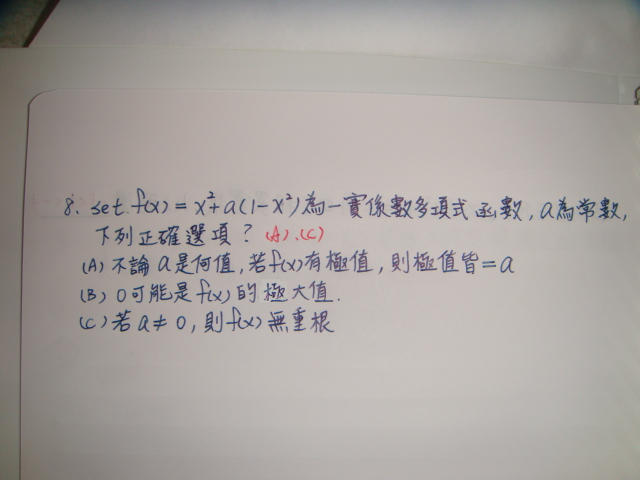 8. set f(x) = x²+a(1-x²)為一實係數多項式函數,a為常數,
下列正確選項? (A).(C)
(A) 不論a是何值,若f(x)有極值,則極值皆=a
(B) 0可能是f(x)的極大值.
(C) 若a≠0,則f(x)無重根